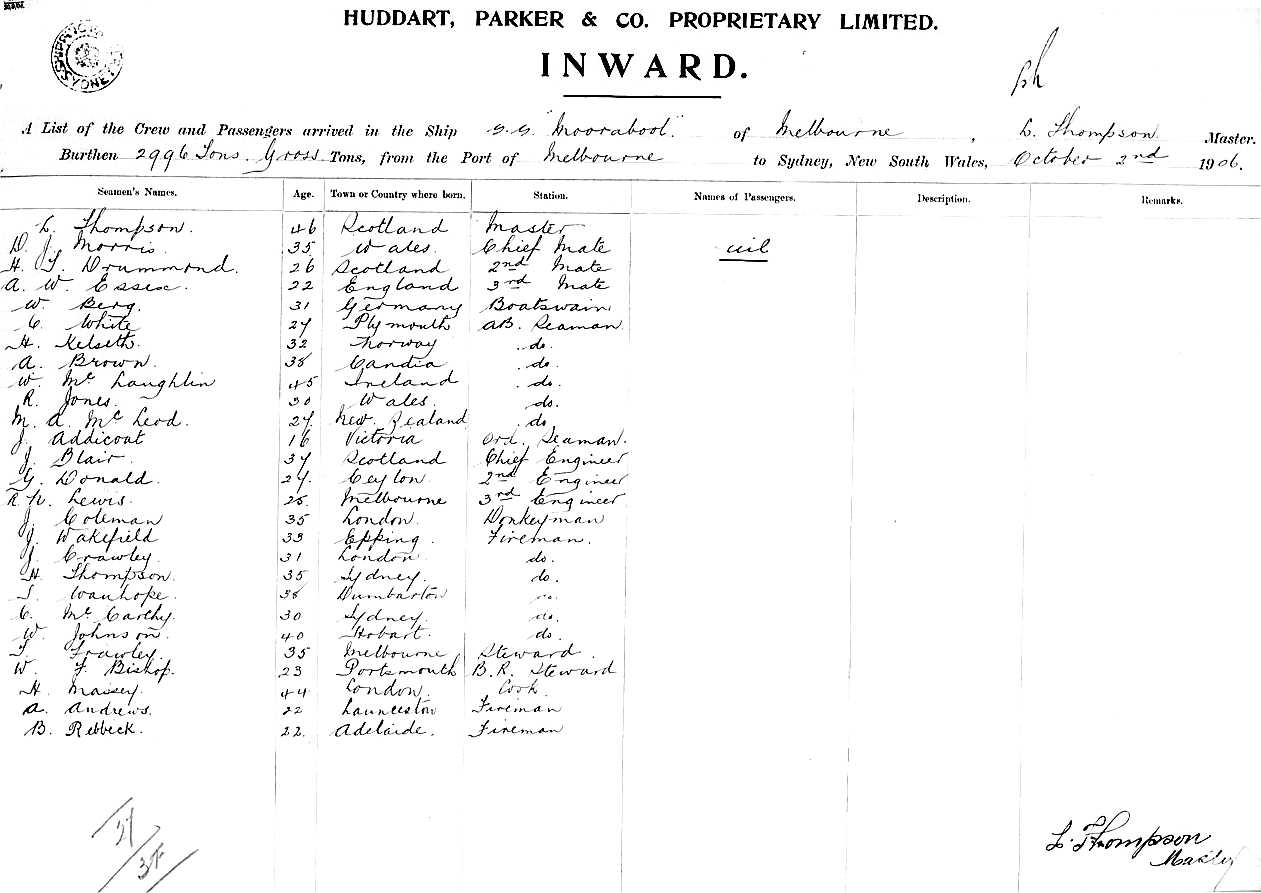 HUDDART, PARKER & CO. PROPRIETARY LIMITED.
INWARD.
A List of the Crew and Passengers arrived in the Ship S.S. "Moorabool" of Melbourne, L. Thompson Master.
Burthen 2996 Tons. Gross Tons, from the Port of Melbourne to Sydney, New South Wales, October 2nd 1906.
Seamen's Names. Age. Town or Country where born. Station. Names of Passengers. Description. Remarks.
L. Thompson. 46 Scotland Master
D. J. Morris. 35 Wales. Chief Mate nil
H. T. Drummond. 26 Scotland 2nd Mate
A. W. Essex. 22 England 3rd Mate
W. Berg. 31 Germany Boatswain
C. White 27 Plymouth AB. Seaman
H. Kelseth. 32 Norway do.
A. Brown. 38 Candia do.
W. McLaughlin 45 Ireland do.
R. Jones. 30 Wales. do.
M. A. McLeod. 27 New Zealand do
J. Addicoat 16 Victoria Ord. Seaman.
J. Blair. 37 Scotland Chief Engineer
G. Donald. 27. Ceylon 2nd Engineer
Lewis. Melbourne 3rd Engineer
J. Coleman 35 London. Donkeyman
J. Wakefield 33 Epping. Fireman.
J. Crawley. 31 London do.
H. Thompson. 35 Sydney. do.
Wanhope. 38 Dumbarton do.
C. McCarthy. 30 Sydney. do.
W. Johnson. 40 Hobart. do.
T. Frawley. 35 Melbourne Steward.
W. F. Bishop. 23 Portsmouth B.R. Steward
H. Massey. 44 London. Cook.
A. Andrews. 22 Launceston Fireman
B. Rebbeck. 22. Adelaide. Fireman
L. Thompson
Master